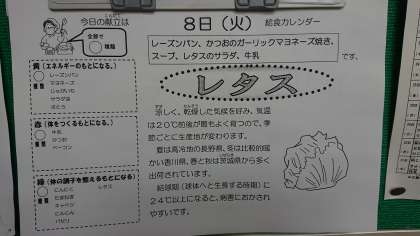 今日の献立は
8日（火）
給食カレンダー
全部で
種類
レーズンパン、かつおのガーリックマヨネーズ焼き、
スープ、レタスのサラダ、牛乳
です。
黄（エネルギーのもとになる。）
種類
レーズンパン
マヨネーズ
じゃがいも
サラダ油
さとう
赤（体をつくるもとになる。）
種類
牛乳
かつお
ベーコン
緑（体の調子を整えるもとになる）
種類
にんにく
レタス
たまねぎ
キャベツ
にんじん
パセリ
レタス
涼しく、乾燥した気候を好み、気温
は20℃前後が最もよく育つので、季
節ごとに生産地が変わります。
夏は高冷地の長野県、冬は比較的暖
かい香川県、春と秋は茨城県から多く
出荷されています。
結球期（球体へと生長する時期）に
24℃以上になると、病害におかされ
やすいです。